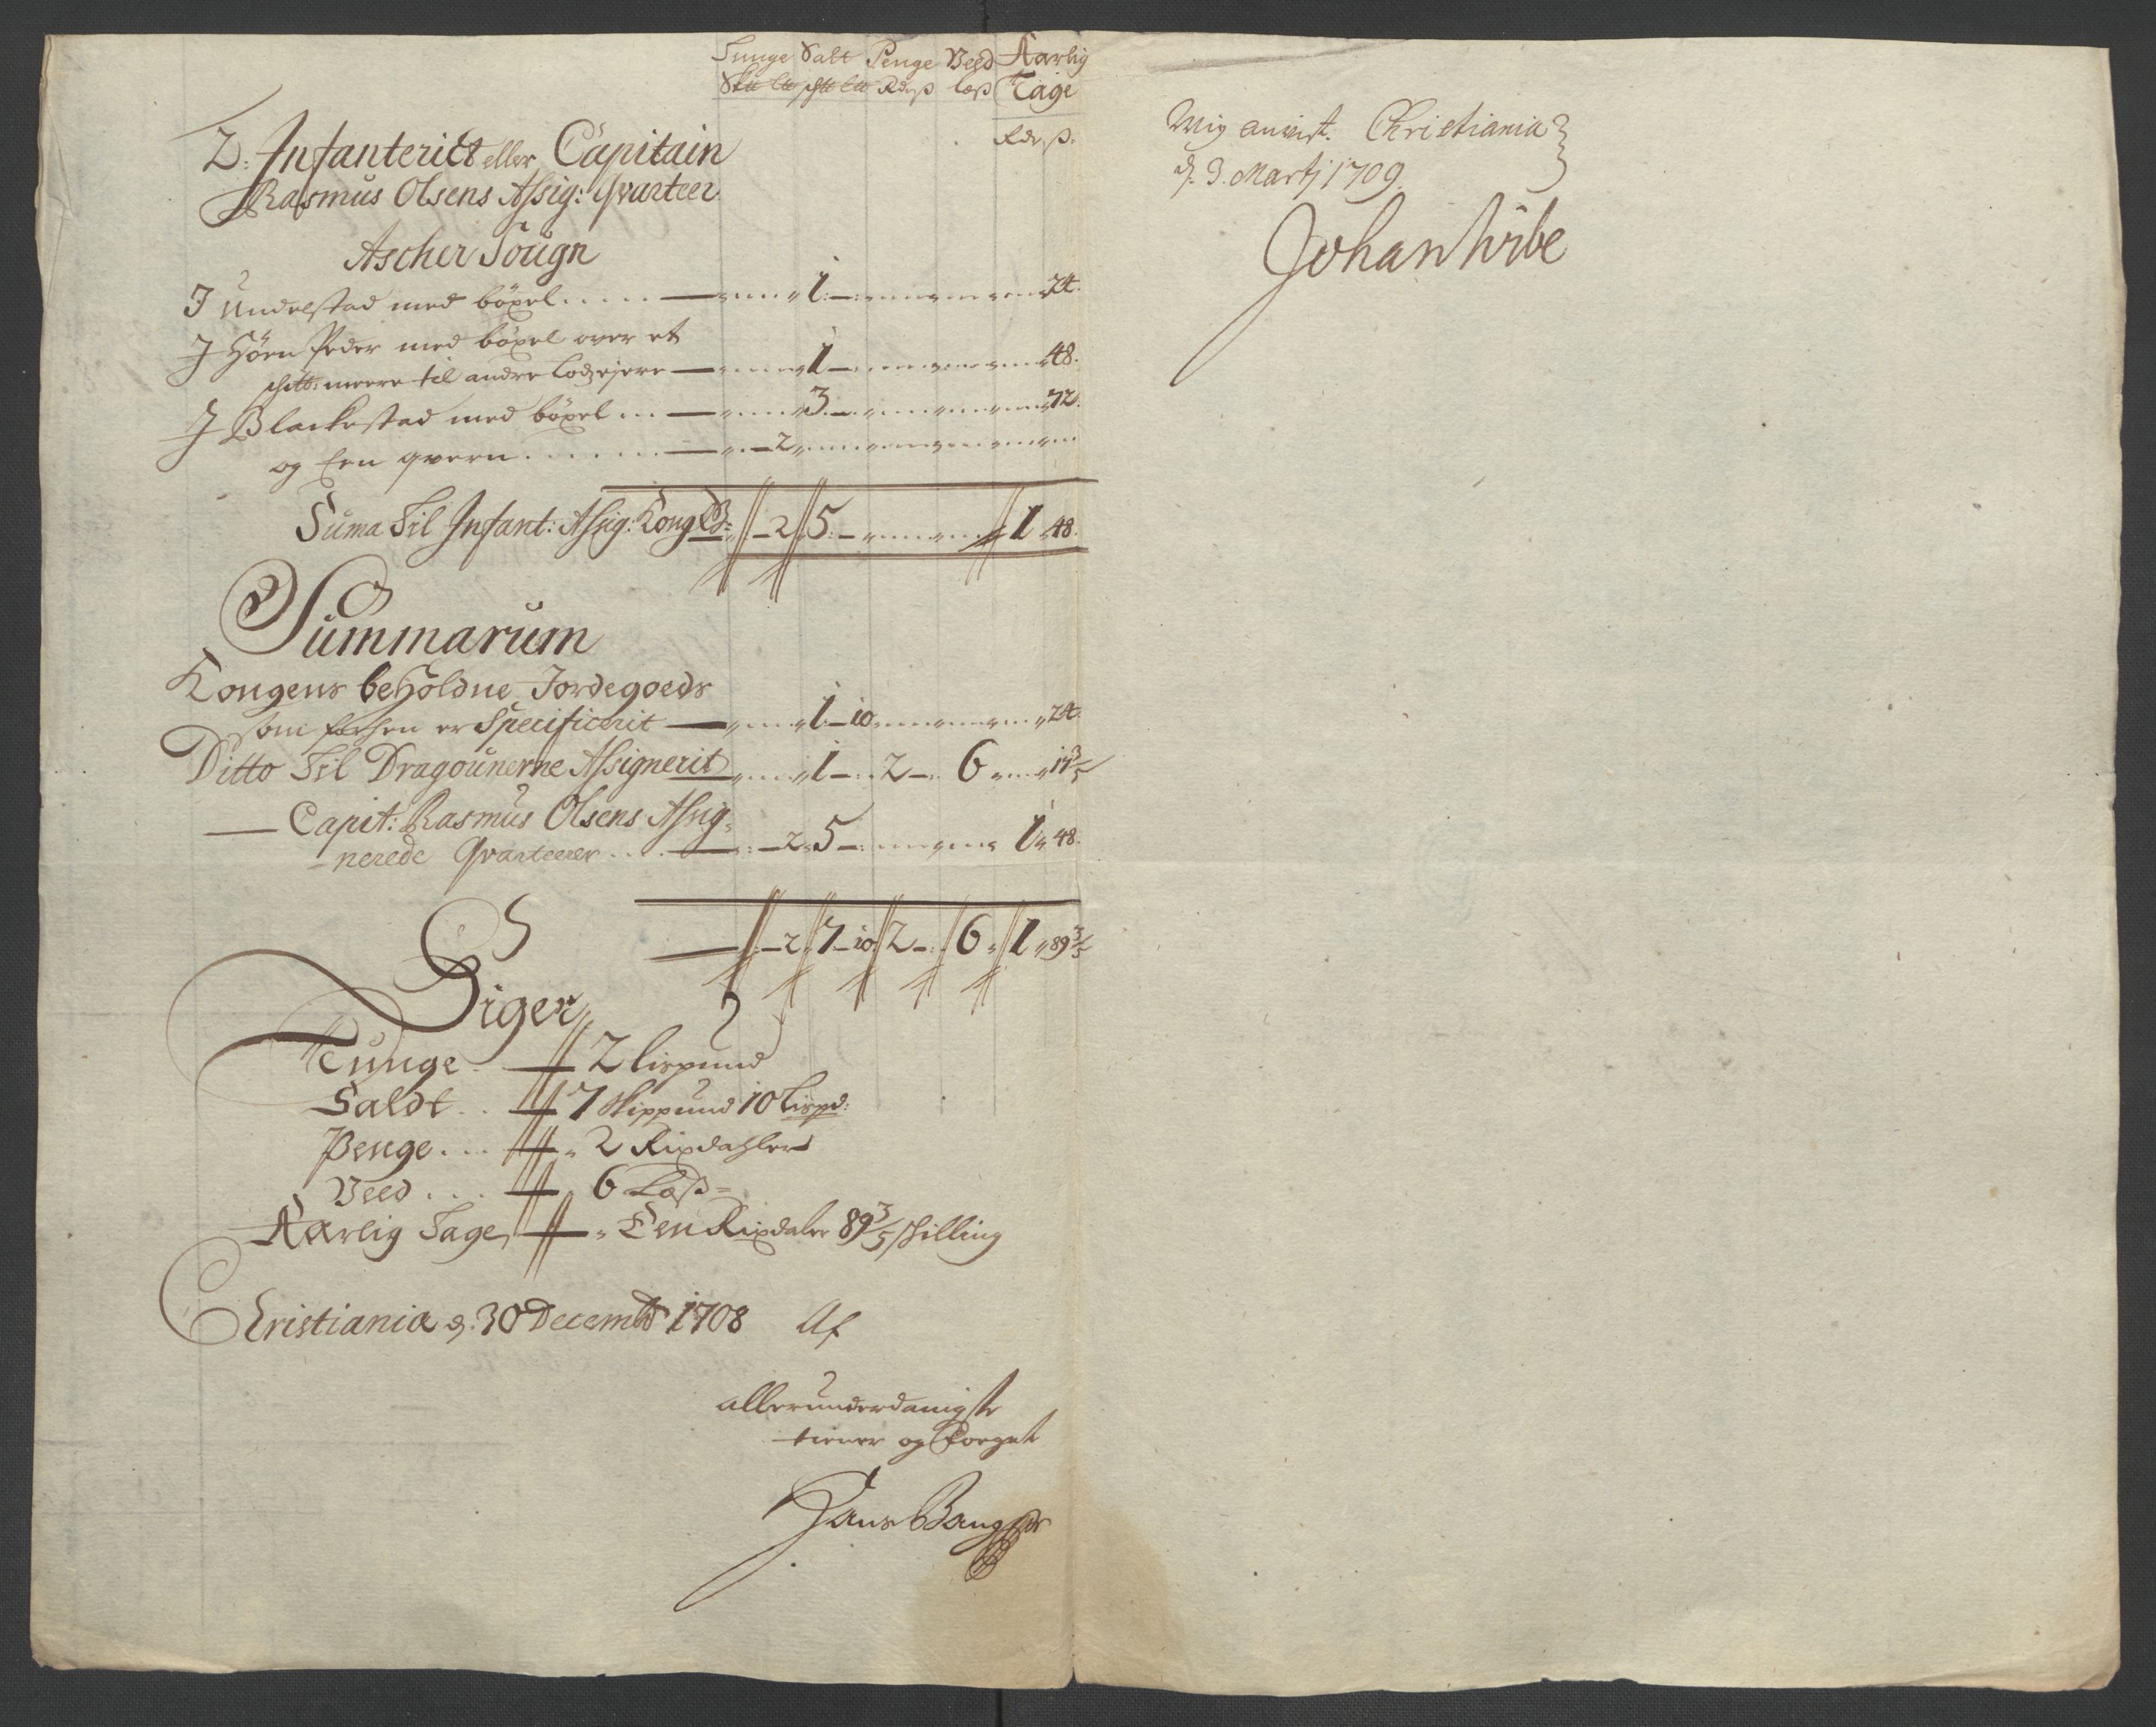 Tunge Salt Penge Veed Aarlig
Skll Lll schll Lll Rdr ß læß Tage
Rdr ß.
2: Infanteriet eller Capitain
Rasmus Olsens Assig: Qvarteer
Ascher Sougn
J Undelstad med böxel ..... 1 – 24.
J Hörn Peder med böxel over et
schtt: meere til andre Lodzejere – 1 – 48.
J Blackestad med böxel ... – 3 – 72.
og Een qvern ...... – 2
Suma Til Infant: Assig: Kong – 2 5 – 1 48.
Summarum
Kongens beholdne Jordegoeds
som forhen er Specificerit – 1 – 10 24.
Ditto Til Dragounerne Assignerit 1 – 2 – 6 17 3/5
— Capit: Rasmus Olsens Assig-
nerede Qvarteerer .... – 2 5 – 1 48.
– 2 7 – 10 2 – 6 1 89 3/5
Siger
Tunge – 2 Lispund
Saldt .. 7 Skippund 10 Lispd:
Penge ... 2 Rixdahler
Veed .... 6 Læß
Aarlig Tage – Een Rixdaler 89 3/5 skilling
Christiania d. 30 Decembr 1708 Af
allerunderdanigste
tiener og Foeget
Hans Bang
Mig anvist. Christiania
d. 9. Martj 1709.
Johan Vibe